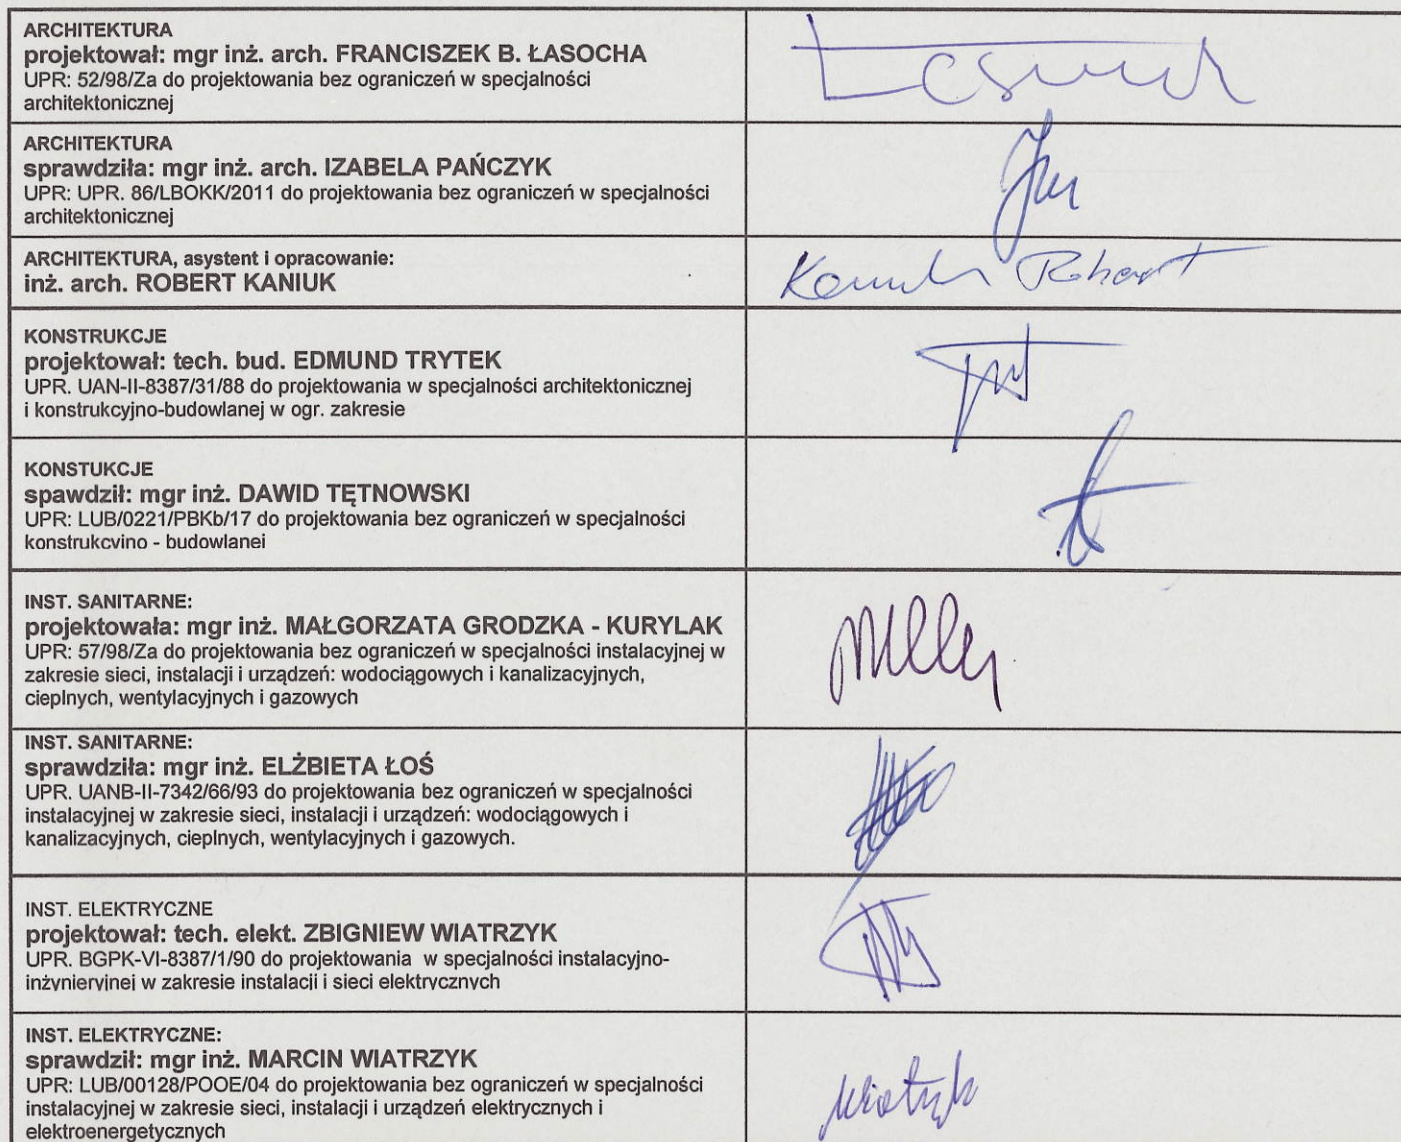 ARCHITEKTURA
projektował: mgr inż. arch. FRANCISZEK B. ŁASOCHA
UPR: 52/98/Za do projektowania bez ograniczeń w specjalności
architektonicznej
ARCHITEKTURA
sprawdziła: mgr inż. arch. IZABELA PAŃCZYK
UPR: UPR. 86/LBOKK/2011 do projektowania bez ograniczeń w specjalności
architektonicznej
ARCHITEKTURA, asystent i opracowanie:
inż. arch. ROBERT KANIUK
Kaniuk Robert
KONSTRUKCJE
projektował: tech. bud. EDMUND TRYTEK
UPR. UAN-II-8387/31/88 do projektowania w specjalności architektonicznej
i konstrukcyjno-budowlanej w ogr. zakresie
KONSTUKCJE
spawdził: mgr inż. DAWID TĘTNOWSKI
UPR: LUB/0221/PBKb/17 do projektowania bez ograniczeń w specjalności
konstrukcyjno - budowlanej
INST. SANITARNE:
projektowała: mgr inż. MAŁGORZATA GRODZKA - KURYLAK
UPR: 57/98/Za do projektowania bez ograniczeń w specjalności instalacyjnej w
zakresie sieci, instalacji i urządzeń: wodociągowych i kanalizacyjnych,
cieplnych, wentylacyjnych i gazowych
INST. SANITARNE:
sprawdziła: mgr inż. ELŻBIETA ŁOŚ
UPR. UANB-II-7342/66/93 do projektowania bez ograniczeń w specjalności
instalacyjnej w zakresie sieci, instalacji i urządzeń: wodociągowych i
kanalizacyjnych, cieplnych, wentylacyjnych i gazowych.
INST. ELEKTRYCZNE
projektował: tech. elekt. ZBIGNIEW WIATRZYK
UPR. BGPK-VI-8387/1/90 do projektowania w specjalności instalacyjno-
inżynieryjnej w zakresie instalacji i sieci elektrycznych
INST. ELEKTRYCZNE:
sprawdził: mgr inż. MARCIN WIATRZYK
UPR: LUB/00128/POOE/04 do projektowania bez ograniczeń w specjalności
instalacyjnej w zakresie sieci, instalacji i urządzeń elektrycznych i
elektroenergetycznych
Wiatrzyk